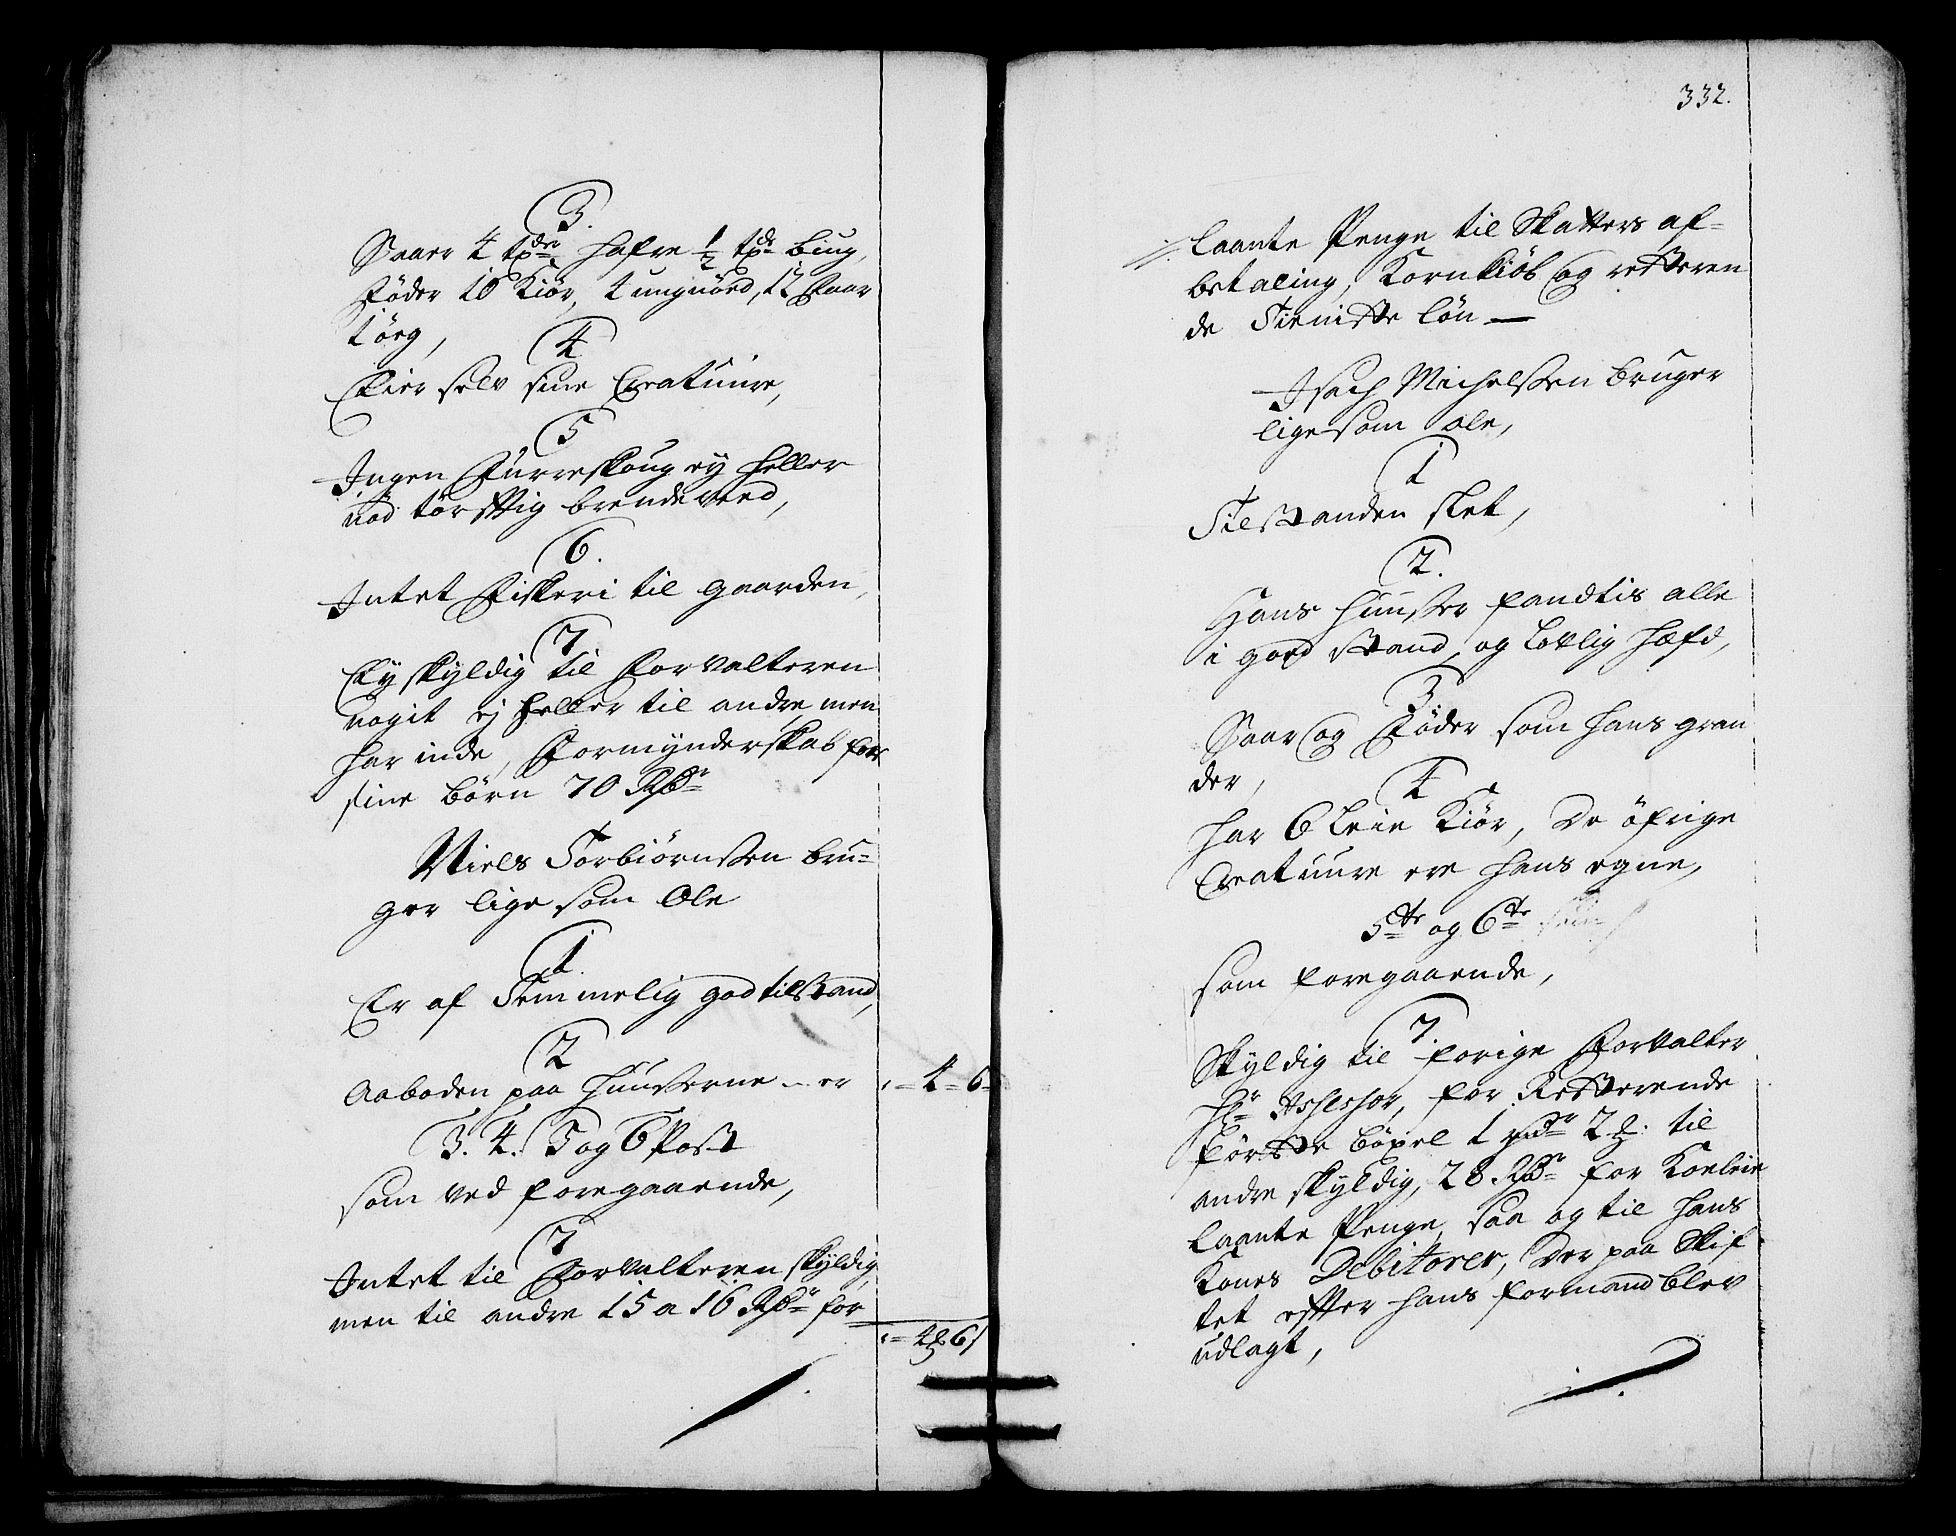 3.
Saaer 4 tr̄der hafre ½ tr̄de biug,
føder 10 Kiør, 4 ungnöed, 12 Faar
törg,
4
Eier selv sine Creatuure,
5
Ingen Furreskoug ey heller
nød tørfftig brendeveed,
6.
Intet Fiskeri til gaarden,
7.
Ey skyldig til Forvalteren
nogit ej heller til andre men
har inde, Formynderskab for
sine börn 70 Rdr
Niels Torbiörnssen bru=
ger lige som Ole
1.
Er af Temmelig god tilstand,
2
Aaboden paa Huusserne - er - 4 - 6 -
3. 4. 5 og 6 Post
som ved foregaaende,
7
Intet til Forvalteren skyldig,
men til andre 15 a 16 Rdr for
- 4 6
332.
laante Penge til Skatters af=
betaling, Kornkiöb og resteren
de Tieniste lön —
Isach Michelssen bruger
lige som ole,
1
Tilstanden slet,
2.
Hans huusser fandtis alle
i goed stand, og lovlig hæfd,
3
Saar og Föder som hans gran
der,
4
har 6 leie Kiör, De öfrige
Creatuure ere hans egne,
5te og 6te
som foregaaende,
7.
Skyldig til forige Forvalter
Hr for Resterende
förste böxel 1 rdr 2 . til
andre skyldig, 28 Rdr for Koeleie
laante Penge, saa og til hans
Kones Debitorer, der paa Skif
tet effter hans formand blev
udlagt,